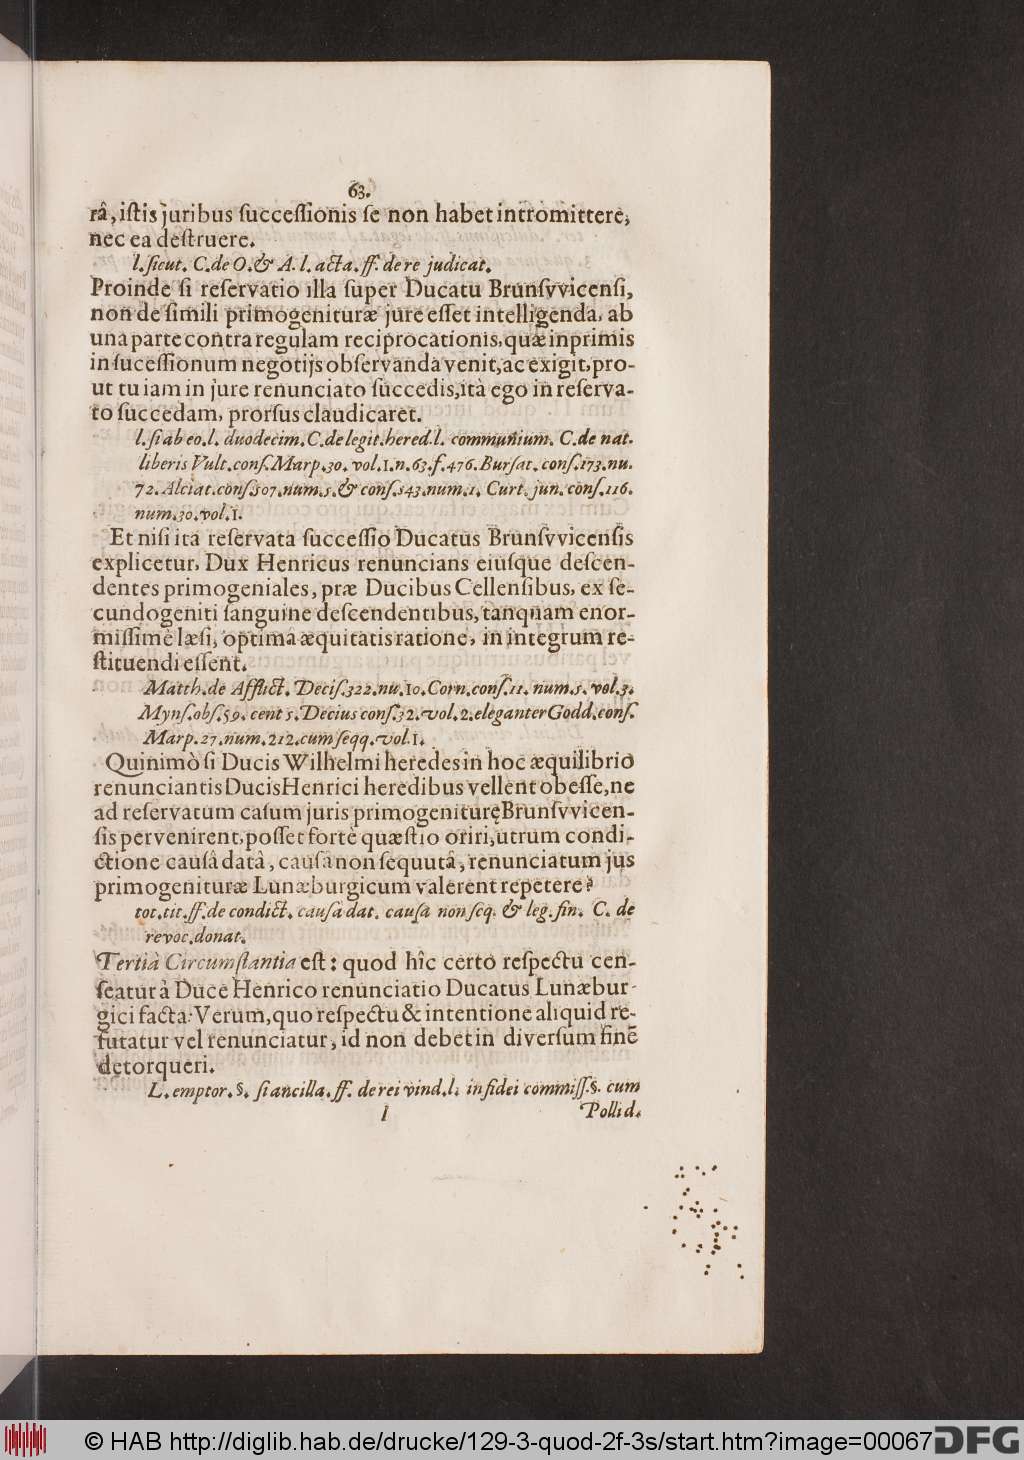 63.
râ, iſtis juribus ſucceſſionis ſe non habet intromittere,
nec ea deſtruere.
l. ſicut. C. de O. & A. l. acta. ff. de re judicat.
Proinde ſi reſervatio illa ſuper Ducatu Brunſvvicenſi,
non de ſimili primogenituræ jure eſſet intelligenda, ab
una parte contra regulam reciprocationis, quæ inprimis
in ſuceſſionum negotijs obſervanda venit, ac exigit, pro-
ut tu iam in jure renunciato ſuccedis, ità ego in reſerva-
to ſuccedam, prorſus claudicaret.
l. ſi ab eo. l. duodecim. C. de legit. hered. l. communium. C. de nat.
liberis Vult. conſ. Marp. 30. vol. 1. n. 63. f. 476. Burſat. conſ. 173. nu.
72. Alciat. conſ. 507. num. 5. & conſ. 543. num. 1. Curt. jun. conſ. 116.
num. 30. vol. 1.
Et niſi ità reſervata ſucceſſio Ducatus Brunſvvicenſis
explicetur, Dux Henricus renuncians eiuſque deſcen-
dentes primogeniales, præ Ducibus Cellenſibus, ex ſe-
cundogeniti ſanguine deſcendentibus, tanquam enor-
miſſimè læſi, optimâ æquitatis ratione, in integrum re-
ſtituendi eſſent.
Matth. de Afflict. Deciſ. 322. nu. 10. Corn. conſ. 11. num. 5. vol. 3.
Mynſ. obſ. 59. cent 5. Decius conſ. 32. vol. 2. eleganter Godd. conſ.
Marp. 27. num. 212. cum ſeqq. vol. 1.
Quinimò ſi Ducis Wilhelmi heredes in hoc æquilibrio
renunciantis Ducis Henrici heredibus vellent obeſſe, ne
ad reſervatum caſum juris primogenituræ Brunſvvicen-
ſis pervenirent, poſſet fortè quæſtio oriri, utrum condi-
ctione cauſâ datâ, cauſâ non ſequutâ, renunciatum jus
primogenituræ Lunæburgicum valerent repetere?
tot. tit. ff. de condict. cauſa dat. cauſa non ſeq. & leg. fin. C. de
revoc. donat.
Tertia Circumſtantia eſt: quod hîc certo reſpectu cen-
ſeatur à Duce Henrico renunciatio Ducatus Lunæbur-
gici facta. Verum, quo reſpectu & intentione aliquid re-
futatur vel renunciatur, id non debet in diverſum finē
detorqueri.
L. emptor. §. ſi ancilla. ff. de rei vind. l. in fidei commiſſ. §. cum
l
Pollid.
© HAB http://diglib.hab.de/drucke/129-3-quod-2f-3s/start.htm?image=00067
DFG